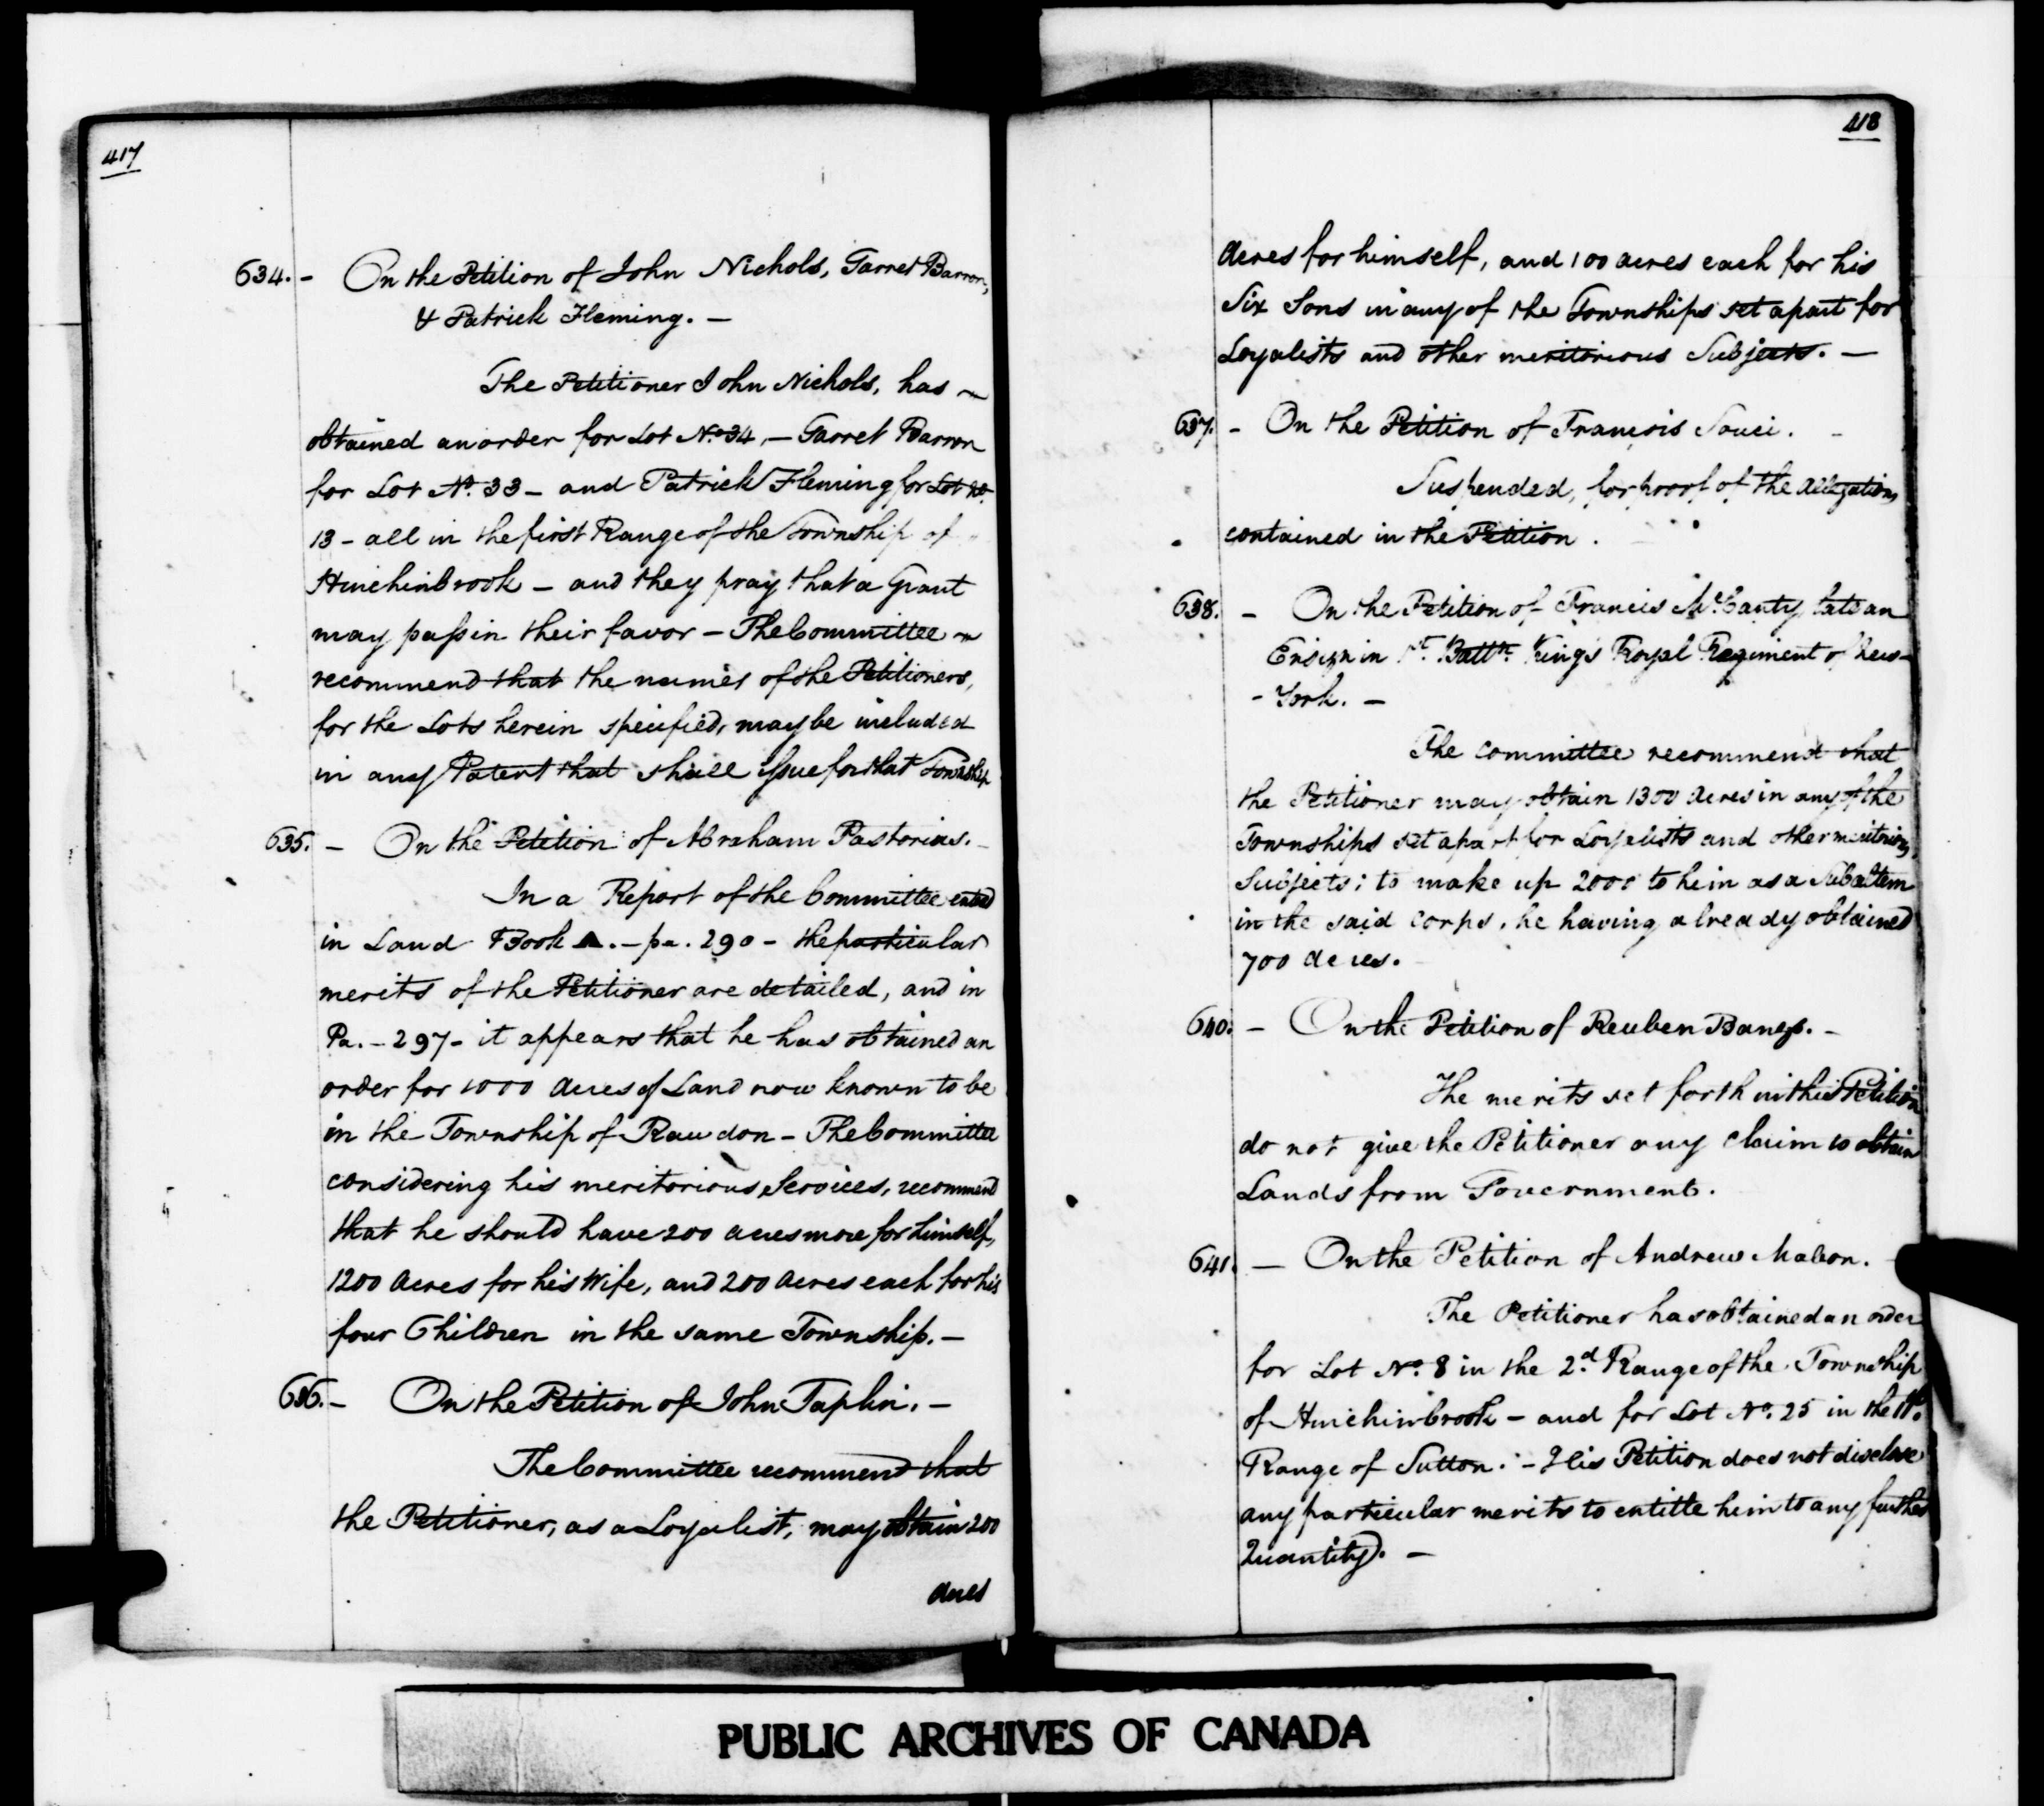 417
634. - On the Petition of John Nichols, Garret Barron,
& Patrick Fleming. -
The Petitioner John Nichols, has
obtained an order for Lot No. 34, - Garret Barron
for Lot No. 33 - and Patrick Fleming for Lot No.
13 - all in the first Range of the Township of
Hinchinbrook - and they pray that a Grant
may pass in their favor - The Committee
recommend that the names of the Petitioners,
for the Lots herein specified, may be included
in any Patent that shall issue for that Township
635. - On the Petition of Abraham Pastorius. -
In a Report of the Committee entd
in Land Book A. - pa. 290 - the particular
merits of the Petitioner are detailed, and in
Pa. - 297 - it appears that he has obtained an
order for 1000 Acres of Land now known to be
in the Township of Rawdon - The Committee
considering his meritorious Services, recommend
that he should have 200 acres more for himself,
1200 Acres for his Wife, and 200 Acres each for his
four Children in the same Township. -
636. - On the Petition of John Taplin. -
The Committee recommend that
the Petitioner, as a Loyalist, may obtain 200
Acres
418
Acres for himself, and 100 acres each for his
Six Sons in any of the Townships set apart for
Loyalists and other meritorious Subjects. -
637. - On the Petition of Francois Souci. -
Suspended, for proof of the Allegations
contained in the Petition.
638. - On the Petition of Francis McCarty, late an
Ensign in 1st. Battn. Kings Royal Regiment of New-
- York. -
The Committee recommend that
the Petitioner may obtain 1300 Acres in any of the
Townships set apart for Loyalists and other meritorious
Subjects; to make up 2000 to him as a Subaltern
in the said Corps, he having already obtained
700 Acres.
640. - On the Petition of Reuben Bangs. -
The merits set forth in this Petition
do not give the Petitioner any claim to obtain
Lands from Government.
641. - On the Petition of Andrew Mabon.
The Petitioner has obtained an order
for Lot No. 8 in the 2d. Range of the Township
of Hinchinbrook - and for Lot No. 25 in the 11th.
Range of Sutton. - His Petition does not disclose
any particular merits to entitle him to any further
Quantity. -
PUBLIC ARCHIVES OF CANADA